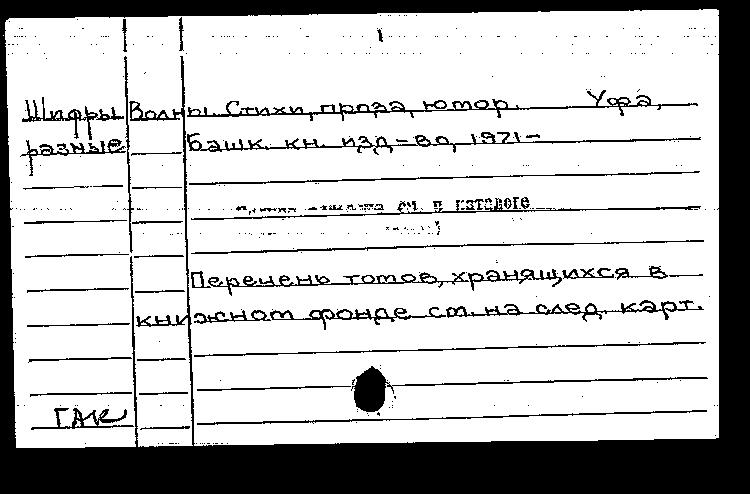 1
Шифры Волны. Стихи, проза, юмор. Уфа,
разные Башк. кн. изд-во, 1971-
см. в каталоге
Перечень томов, хранящихся в
книжном фонде см. на след. карт.
ГАК